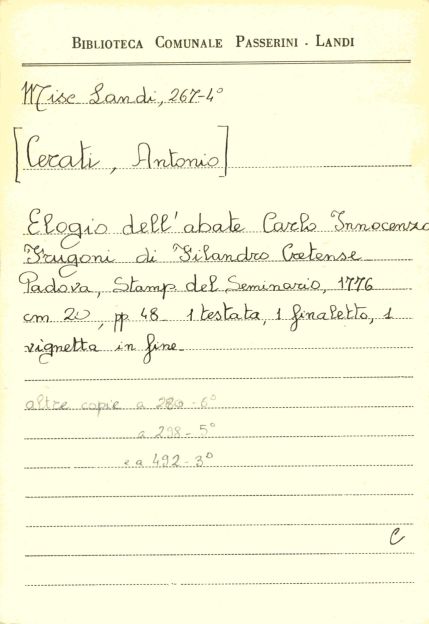 BIBLIOTECA COMUNALE PASSERINI - LANDI
Misc Landi, 267-4°
[Cerati, Antonio]
Elogio dell'abate Carlo Innocenzo
Frugoni di Filandro Cretense
Padova, Stamp del Seminario, 1776
cm 20, pp 48 1 testata, 1 finaletto, 1
vignetta in fine
altre copie a 280-6°
a 298-5°
e a 492-3°
C